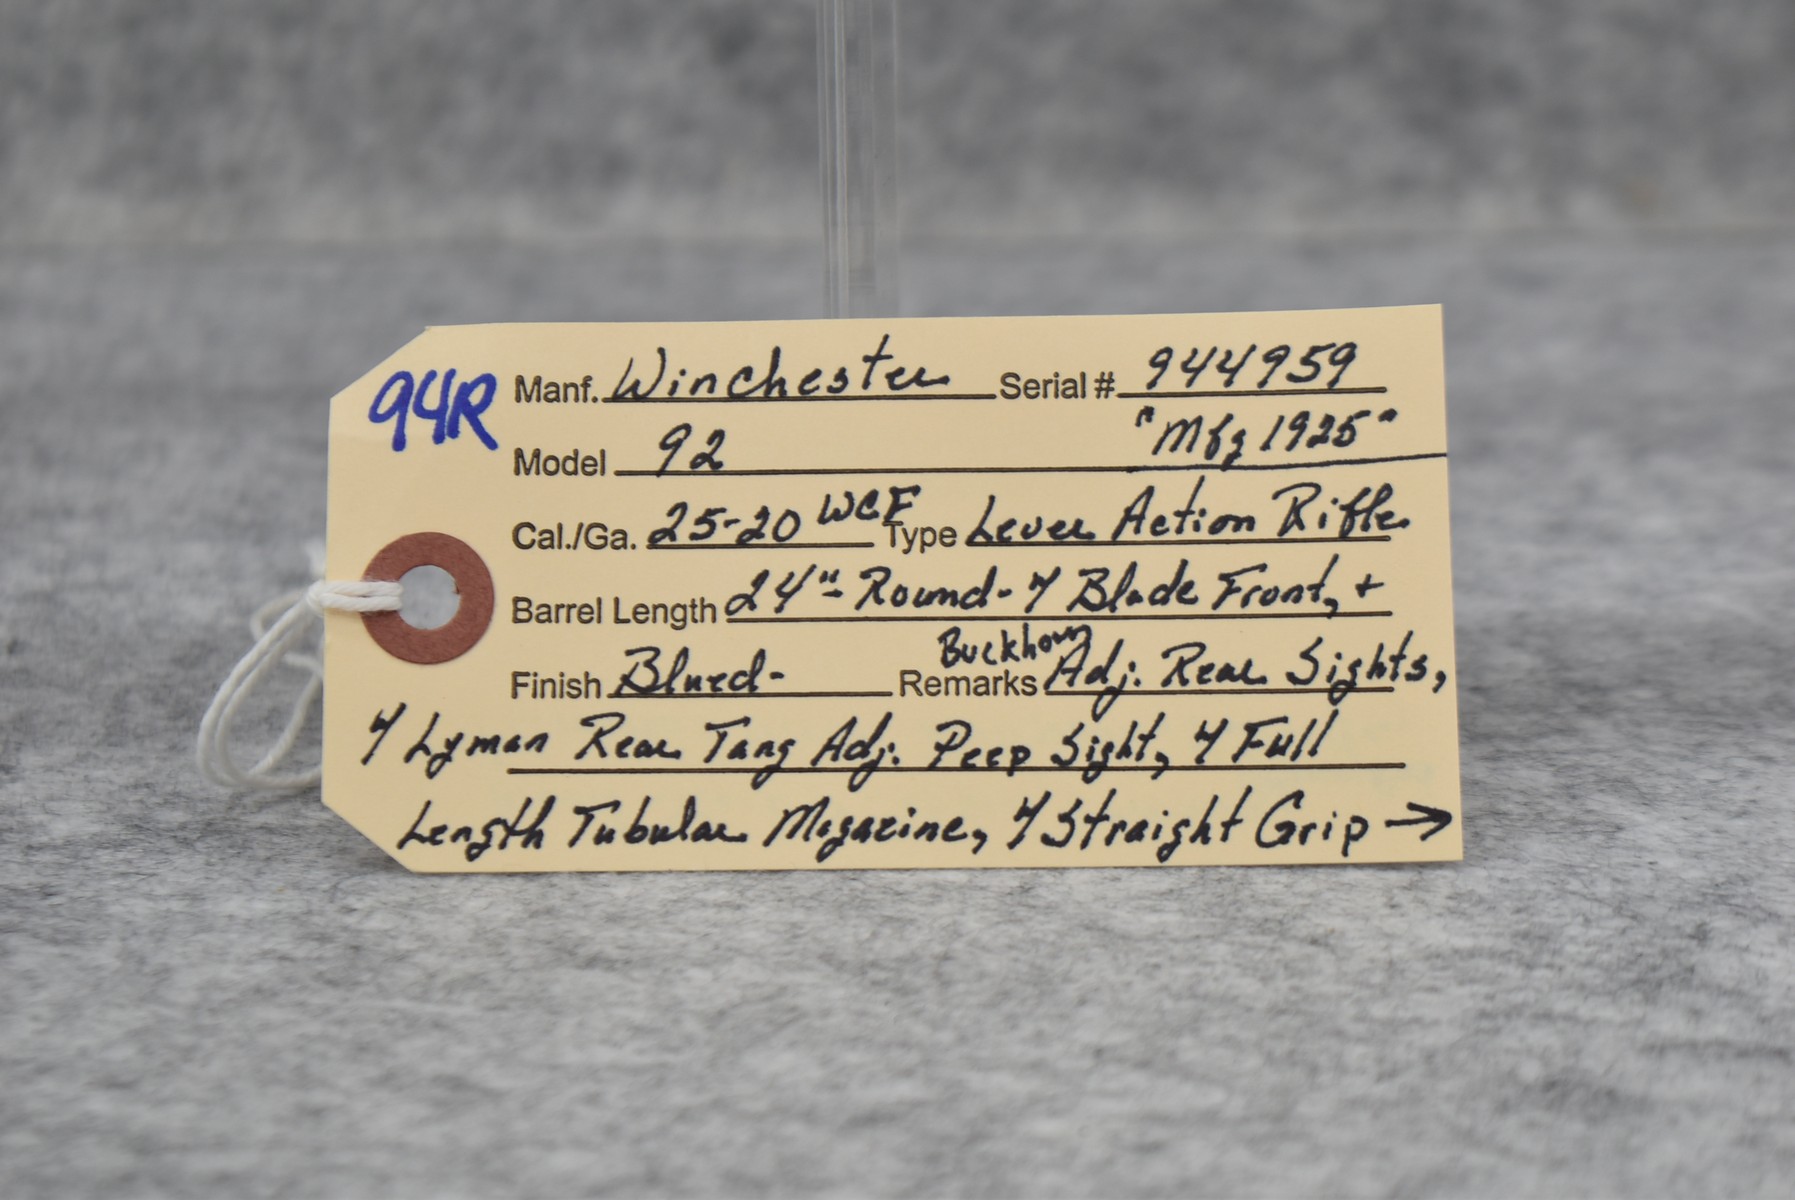 94R
Manf. Winchester Serial # 944959
Model 92 "Mfg 1925"
Cal./Ga. 25-20 WCF Type Lever Action Rifle
Barrel Length 24"- Round- Blade Front, +
Finish Blued- Remarks Buckhorn Adj. Rear Sights,
Lyman Rear Tang Adj. Peep Sight, Full
Length Tubular Magazine, Straight Grip →